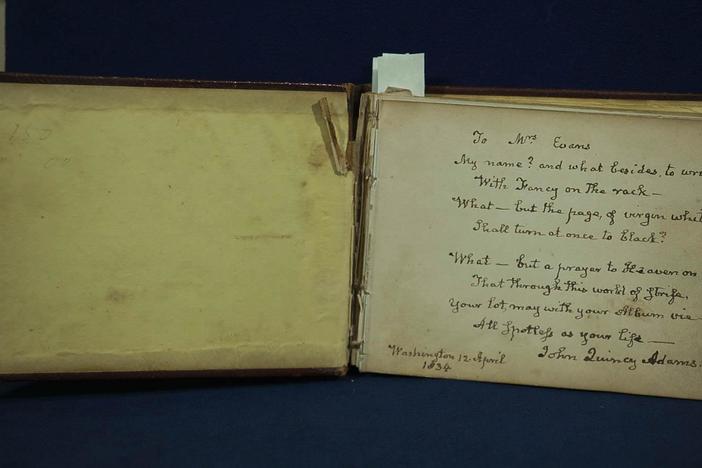 To Mrs Evans
My name? and what besides, to
With Fancy on the rack —
What — but the page, of virgin
Shall turn at once to black?
What — but a prayer to Heaven on
That through this world of Strife,
Your lot, may with your Album vie
All Spotless as your life —
Washington 12 April
1834
John Quincy Adams.